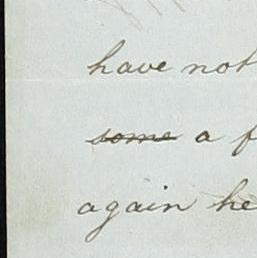 have not
some a f
again he